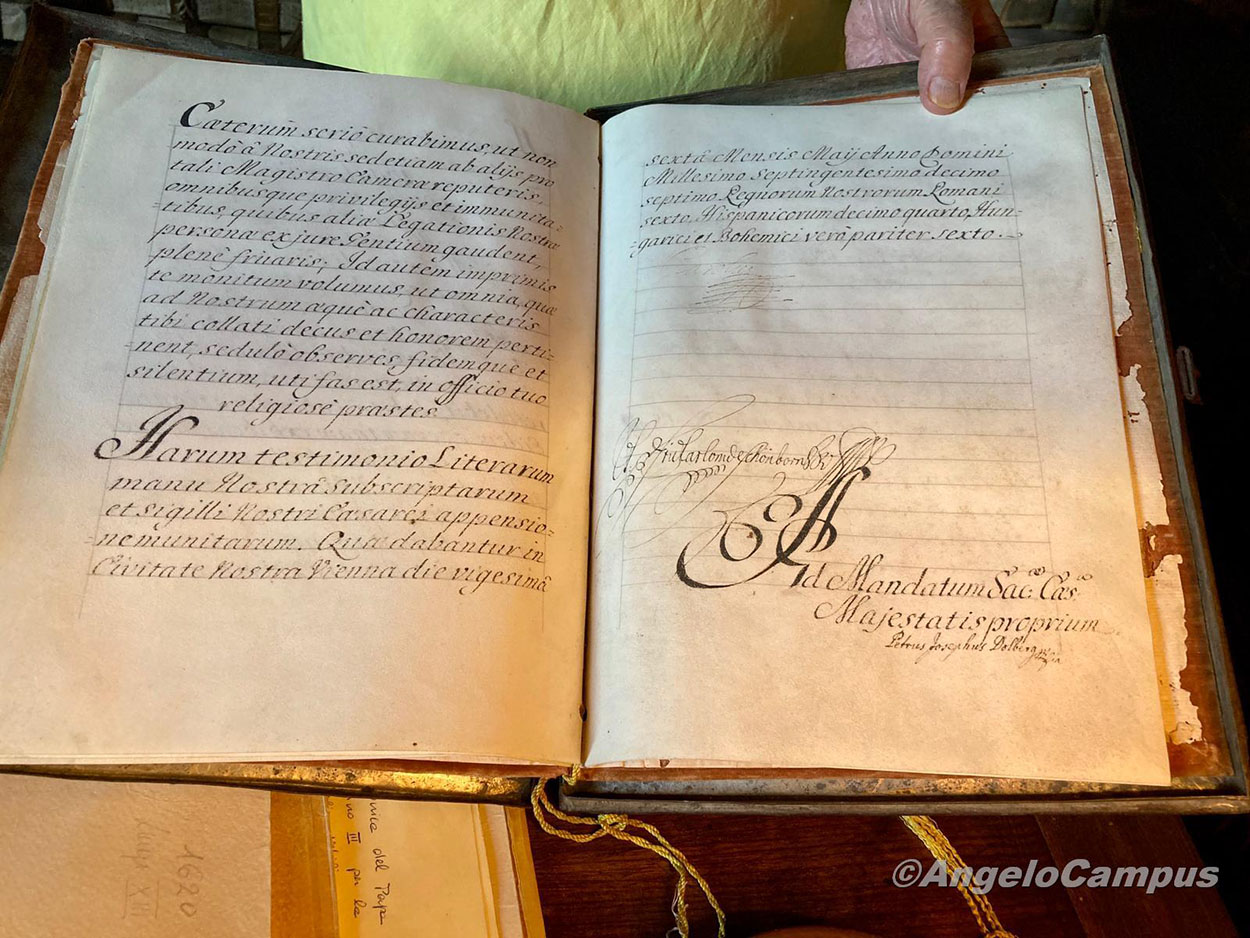 Cæterum seriò curabimus, ut non
modò à Nostris sed etiam ab alijs pro
tali Magistro Cameræ reputeris
omnibusque privilegijs et immunita-
tibus, quibus alia Legationis Nostræ
persona ex jure Gentium gaudent,
plenè fruaris; Id autem imprimis
te monitum volumus, ut omnia, quæ
ad Nostrum æquè ac characteris
tibi collati decus et honorem perti-
nent, sedulò observes, fidemquè et
silentium, uti fas est, in officio tuo
religiosè præstes.
Harum testimonio Literarum
manu Nostrâ subscriptarum
et sigilli Nostri Cæsarei appensio-
ne munitarum. Quæ dabantur in
Civitate Nostra Viennæ die vigesimâ
sextâ Mensis Maÿ Anno Domini
Millesimo Septingentesimo decimo
septimo Regnorum Nostrorum Romani
sexto, Hispanicorum decimo quarto, Hun-
garici et Bohemici verò pariter sexto.
Ad Mandatum Sac: Cæs:
Majestatis proprium
Petrus Josephus Dolberg
1620
del Pap
III per la
©AngeloCampus